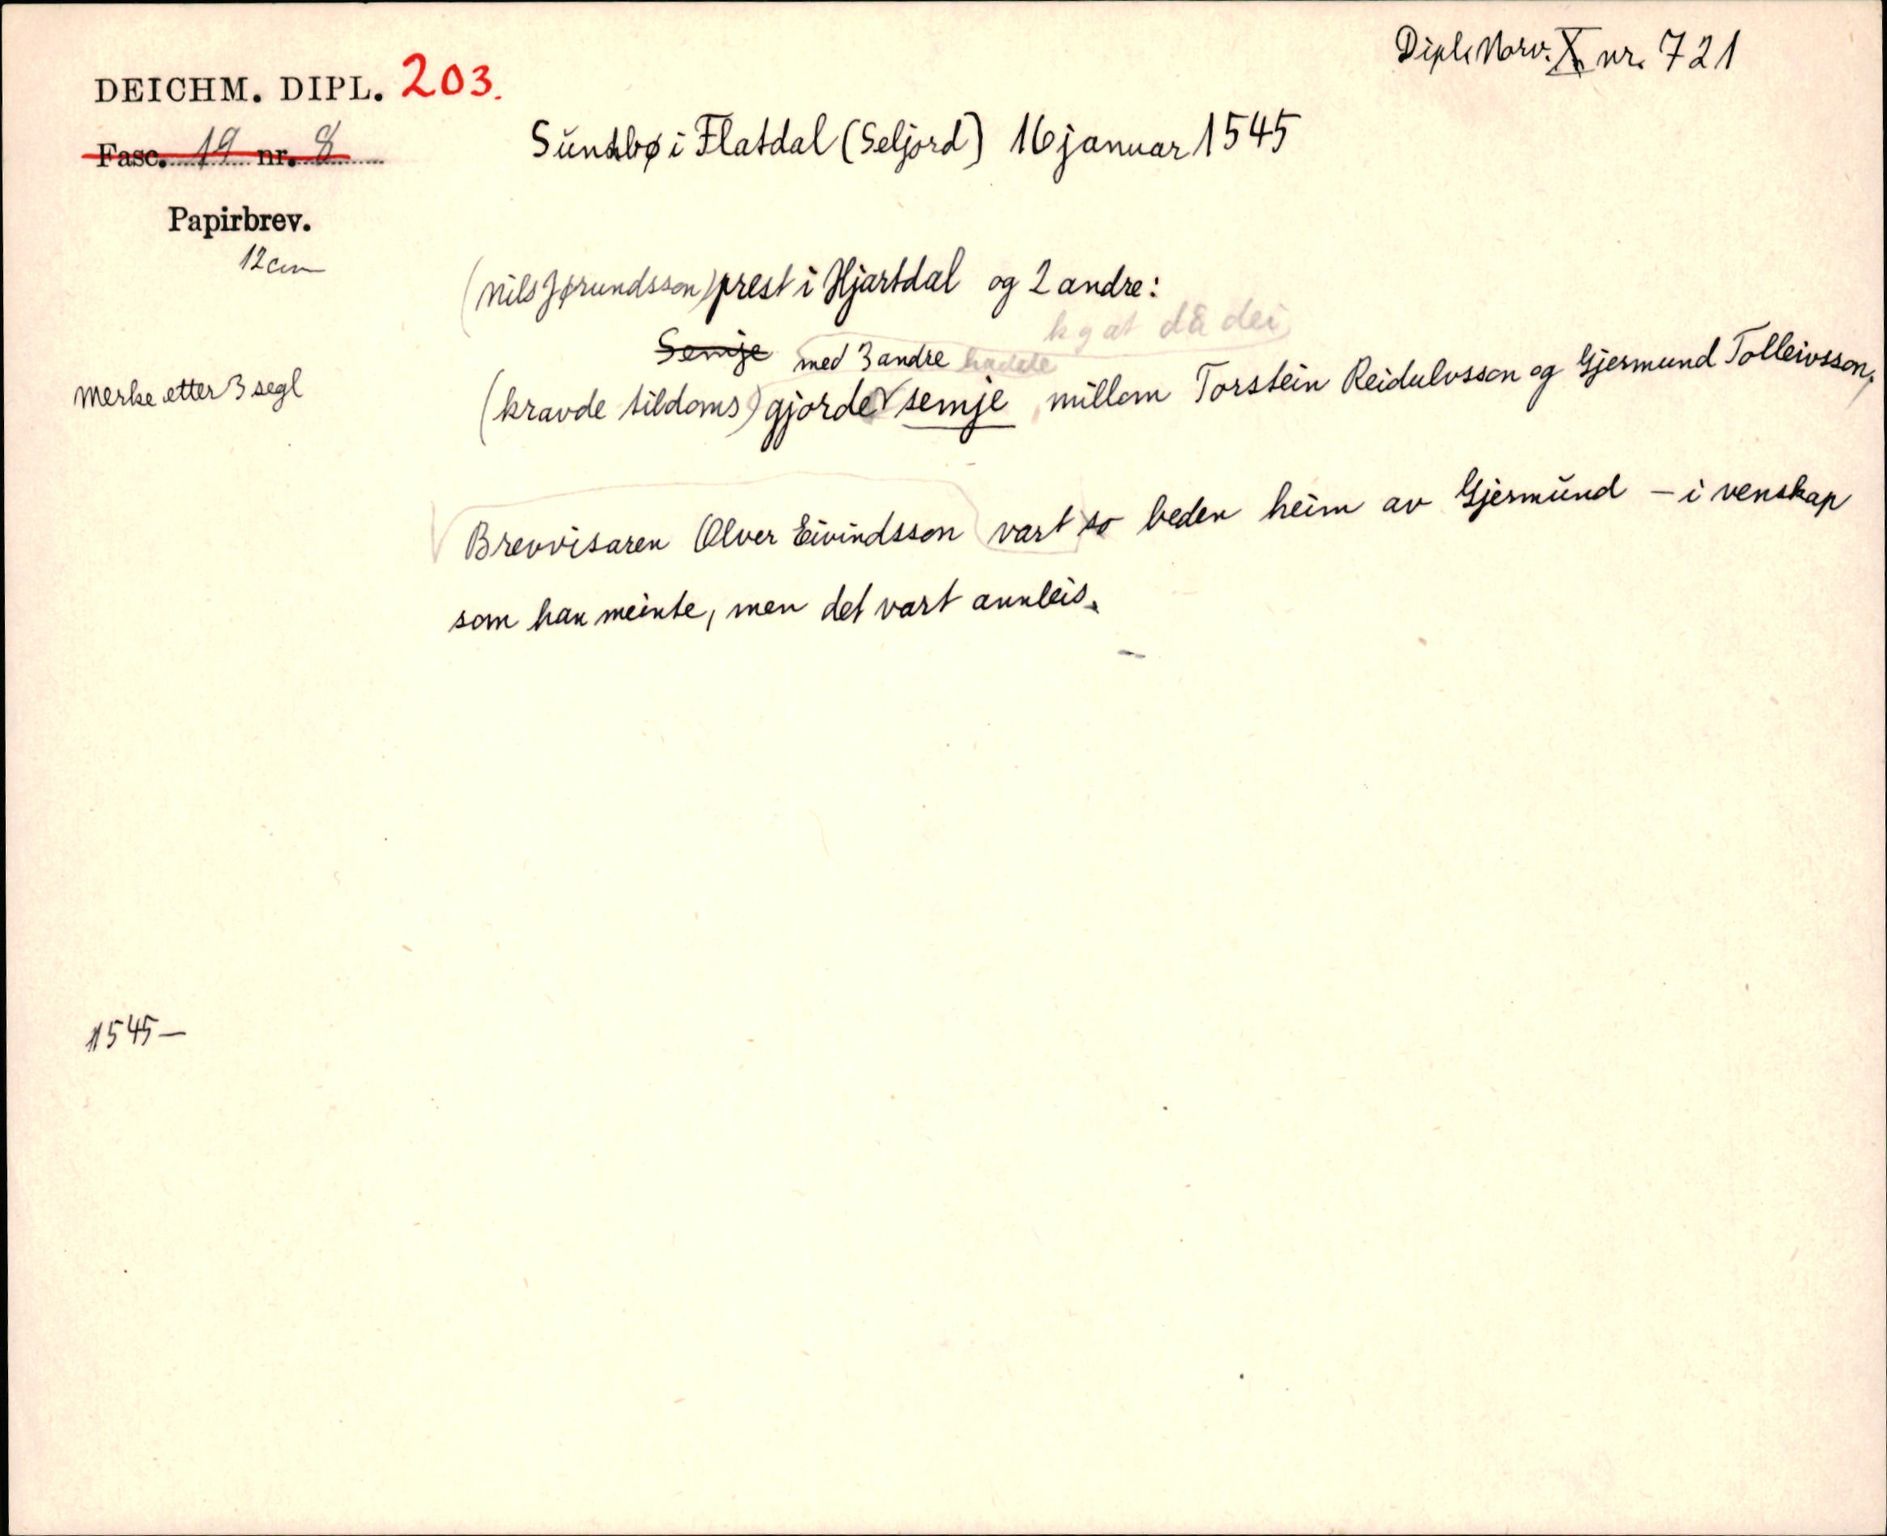 Dipl. Norv. X nr. 721
DEICHM. DIPL. 203.
Fasc. 19 nr. 8
Sundbø i Flatdal (Seljord) 16 januar 1545
Papirbrev.
12 cm
(Nils Jørundsson) prest i Hjartdal og 2 andre:
kg at då dei
Semje med 3 andre hadde
Merke etter 3 segl
(kravde tildoms) gjorde semje millom Torstein Reidulvsson og Gjermund Tolleivsson,
Brevvisaren Olver Eivindsson vart so beden heim av Gjermund – i venskap
som han meinte, men det vart annleis.
1545–